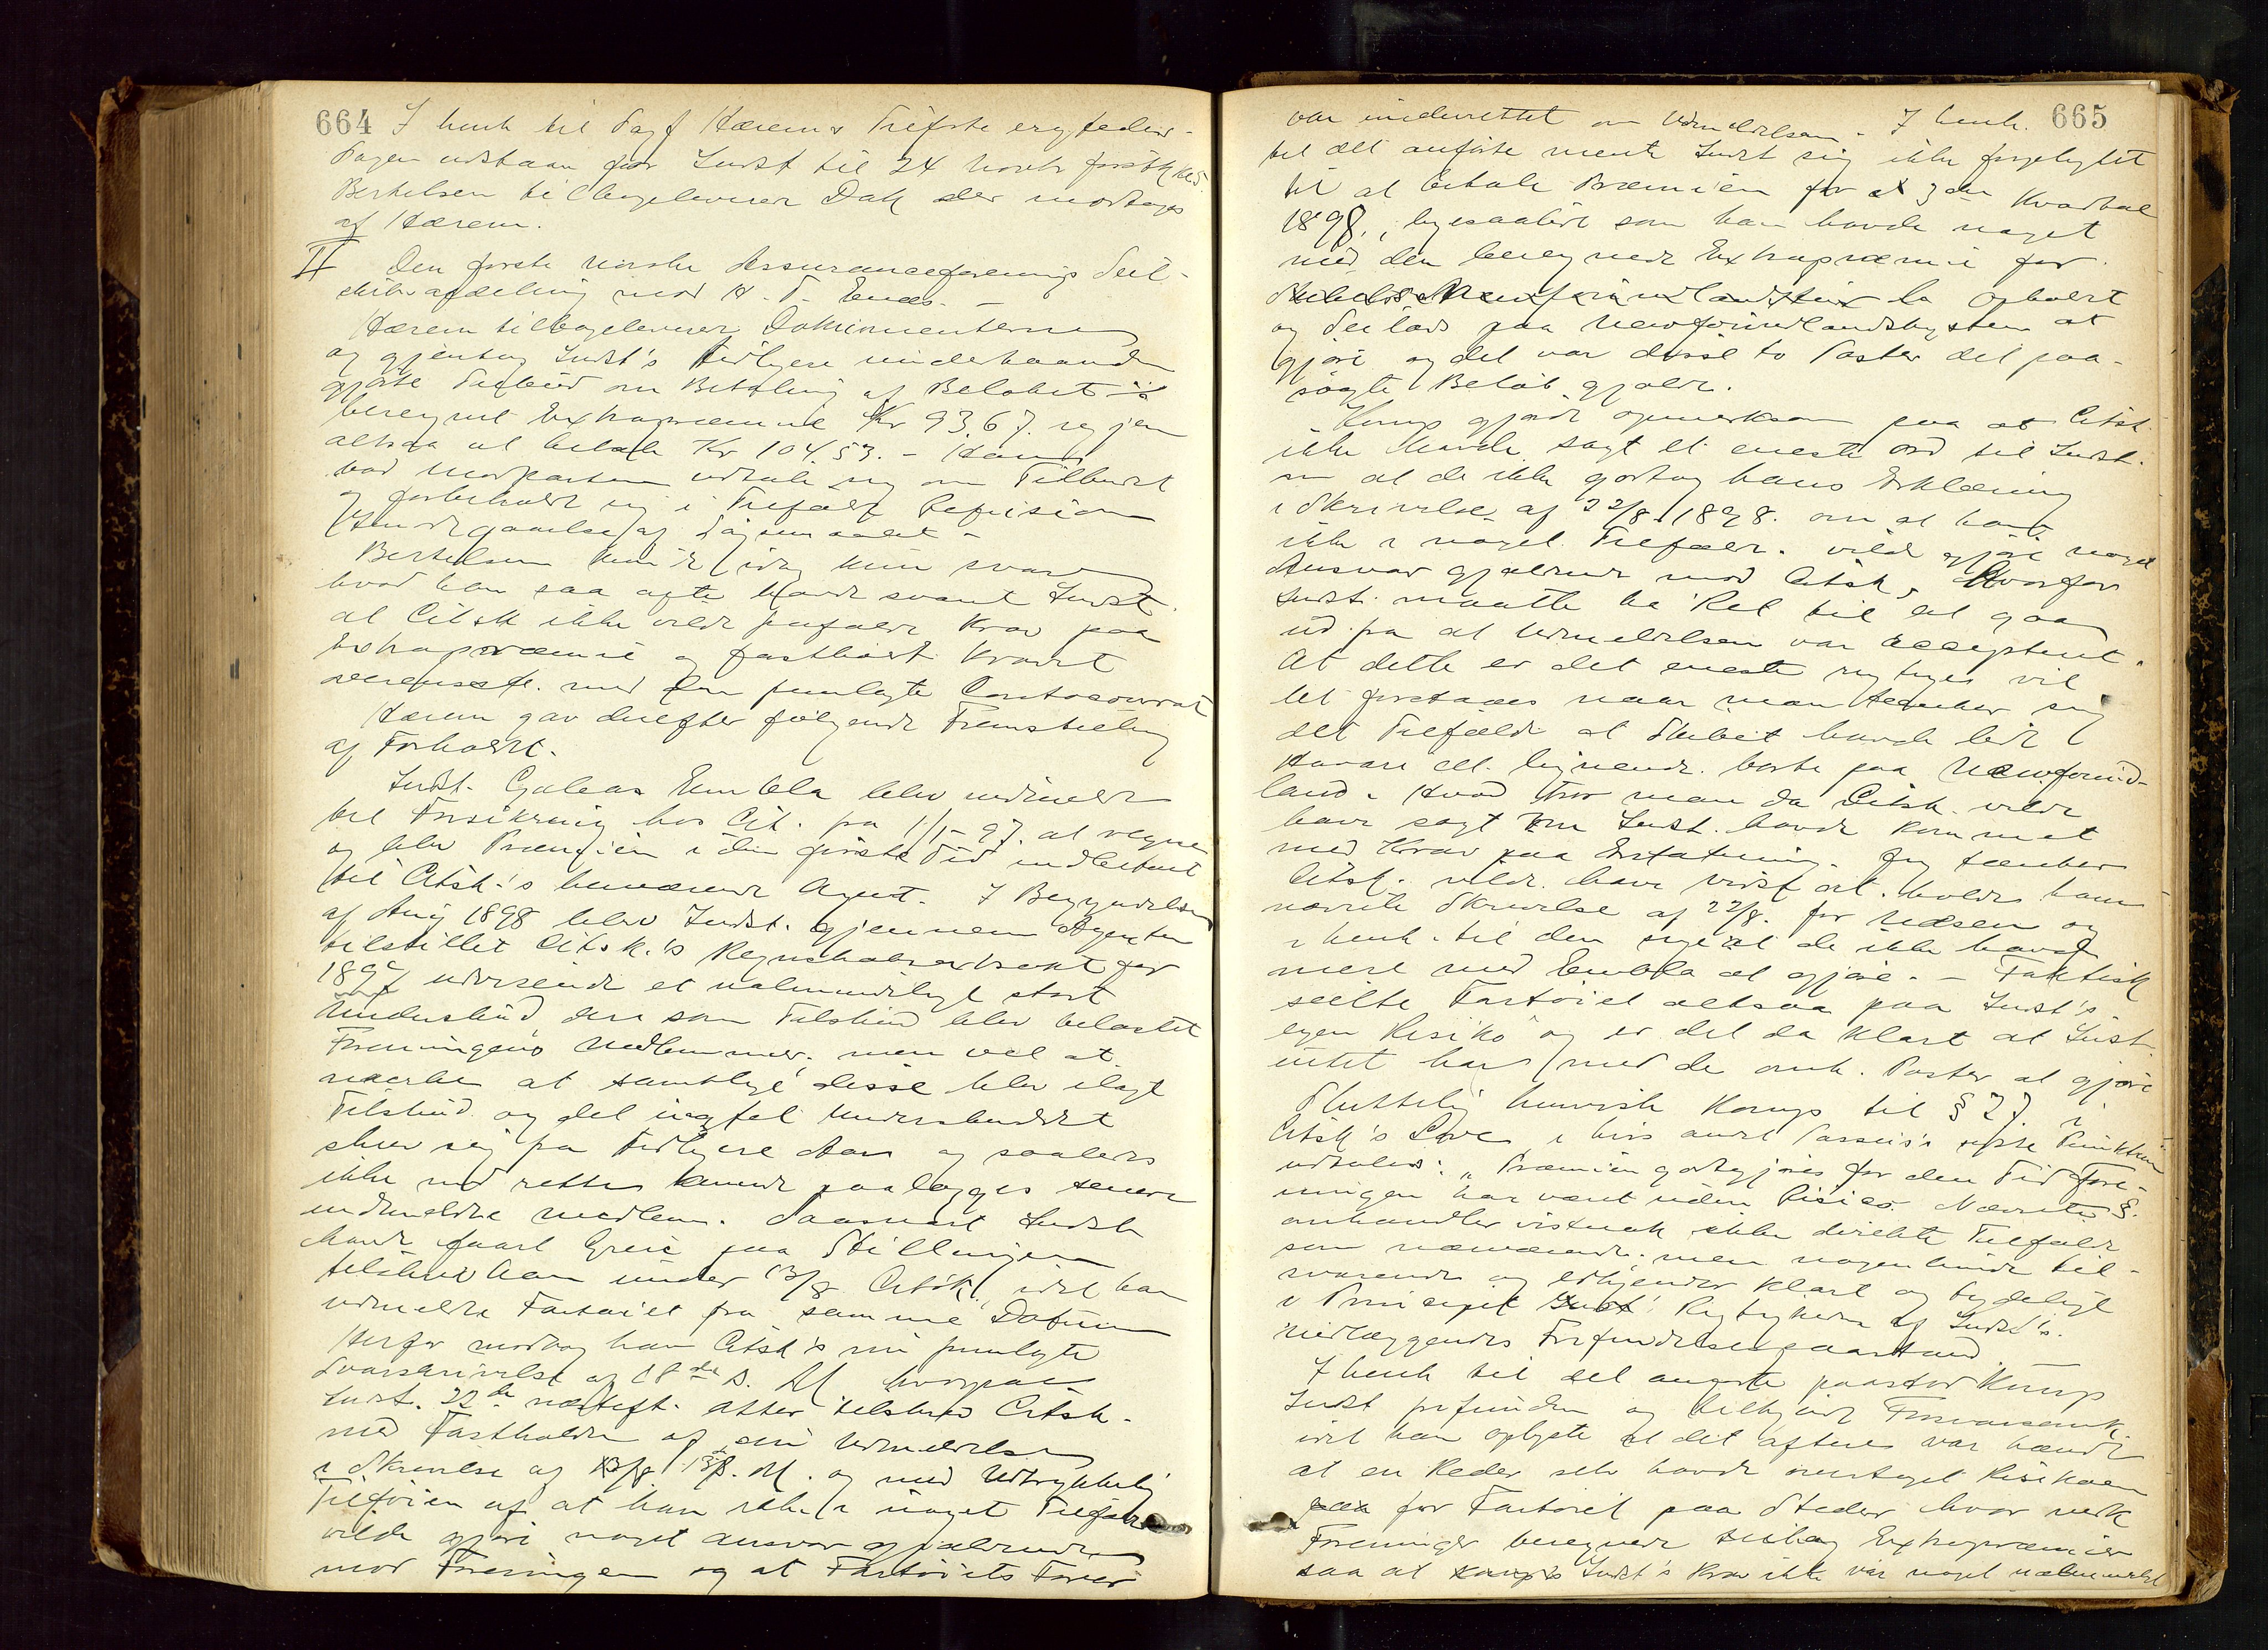 664 I henh til Sag f Hærem
Sagen udstaar for Indst til 24
Bertelsen tilbageleverer Dok der modtages
af Hærem.
II Den første norske Assuranceforenings Seil-
skibsafdeling mod
Hærem tilbageleverer Dokumenterne
og gjentog Indst's tidligere underhaanden
gjorte Tilbud om Betaling af Beløbet ÷
beregnet Extrapræmie Kr 93.67. igjen
altsaa at betale Kr 104.53. - Han
bad Modparten udtale sig om Tilbudet
og forbeholdt sig i Tilfælde
af Søgsmaalet -
Bertelsen kunde idag kun svare
hvad han saa ofte havde svaret Indst.
at Citsk ikke vilde frafalde Krav paa
Extrapræmie og fastholdt Kravet
overensst. med den fremlagte Contocourant
Hærem gav derefter følgende Fremstilling
af Forholdet.
Indst. Galeas Embla blev indmeldt
til Forsikring hos Cit. fra 1/1-97. at regne
og blev Præmien i den første Tid indbetalt
til Citsk.'s henværende Agent. I Begyndelsen
af Aug 1898 blev Indst. gjennem Agenten
tilstillet Citsk.'s Regnskabsextrakt for
1897 udvisende et ualmindeligt stort
Underskud der som Tilskud blev belastet
Foreningens Medlemmer. men vel at
mærke at samtlige disse blev ilagt
Tilskud og det uagtet Underskuddet
skrev sig fra tidligere Aar og saaledes
ikke med rette kunde paalægges senere
indmeldte Medlem. Saasnart Indst
havde faaet Greie paa Stillingen
tilskrev han under 13/8 Citsk, idet han
udmeldte Fartøiet fra samme Datum
Herfor modtog han Citsk's nu fremlagte
Svarskrivelse af 18de s. M hvorpaa
Indst. 22de næsteft. atter tilskrev Citsk.
med Fastholden af sin Udmeldelse
i Skrivelse af 13/8 s. M. og med Udtrykkelig
Tilføien af at han ikke i noget Tilfælde
vilde gjøre noget ansvar gjældende
mod Foreningen og at Fartøiets Fører
var underrettet om Udmeldelsen. - I henh. 665
til det anførte mente Indst sig ikke forpligtet
til at betale Præmien for 3die Kvartal
1898., ligesaalidt som han havde noget
med den beregnede Extrapræmie for
Ophold
og Seilads paa Newfoundlandskysten at
gjøre og det var disse to Poster det paa-
søgte Beløb gjaldt.
gjorde opmerksom paa at Citsk.
ikke havde sagt et eneste ord til Indst.
om at de ikke godtog hans Erklæring
i Skrivelse af 22/8 1898. om at han
ikke i noget Tilfælde. vilde gjøre noget
Ansvar gjældende mod Citsk, Hvorfor
Indst. maatte ha Ret til at gaa
ud fra at Udmeldelsen var acceptert.
At dette er det eneste rigtige vil
let forstaaes naar man tænker sig
det Tilfælde at Skibet havde lidt
Havari ell. lignende. borte paa Newfound-
land. Hvad tror man da Citsk. vilde
have sagt om Indst. havde kommet
med Krav paa Erstatning. Jeg tænker
Citsk. vilde. have vidst at. holde ham
nævnte Skrivelse af 22/8. for Næsen og
i henh. til den sige at de ikke havde
mere med Embla at gjøre. - Faktisk
seilte Fartøiet altsaa paa Indst's
egen Risiko og er det da klart at Indst.
intet har med de omh. Poster at gjøre
Sluttelig henviste til § 27 i
Citsk's Love i hvis andet Passus's siste Punktum
udtales: „Præmien godtgjøres for den Tid Fore-
ningen har været uden Risico. Nævnte §.
omhandler vistnok ikke direkte Tilfælde
som nærværende. men nogenlunde til-
svarende og tilkjender klart og tydeligt
i Principet Rigtigheden af Indst's.
nedlæggendes Frifindelsespaastand
I henh til det anførte paastod
Indst frifunden og tilkjendt
idet han oplyste at det oftere var hændt
at en Reder selv havde overtaget Risikoen
for Fartøiet paa Steder hvor vedk
Foreninger beregnede Extrapræmier
saa at Indst's Krav ikke var noget ualmindeligt